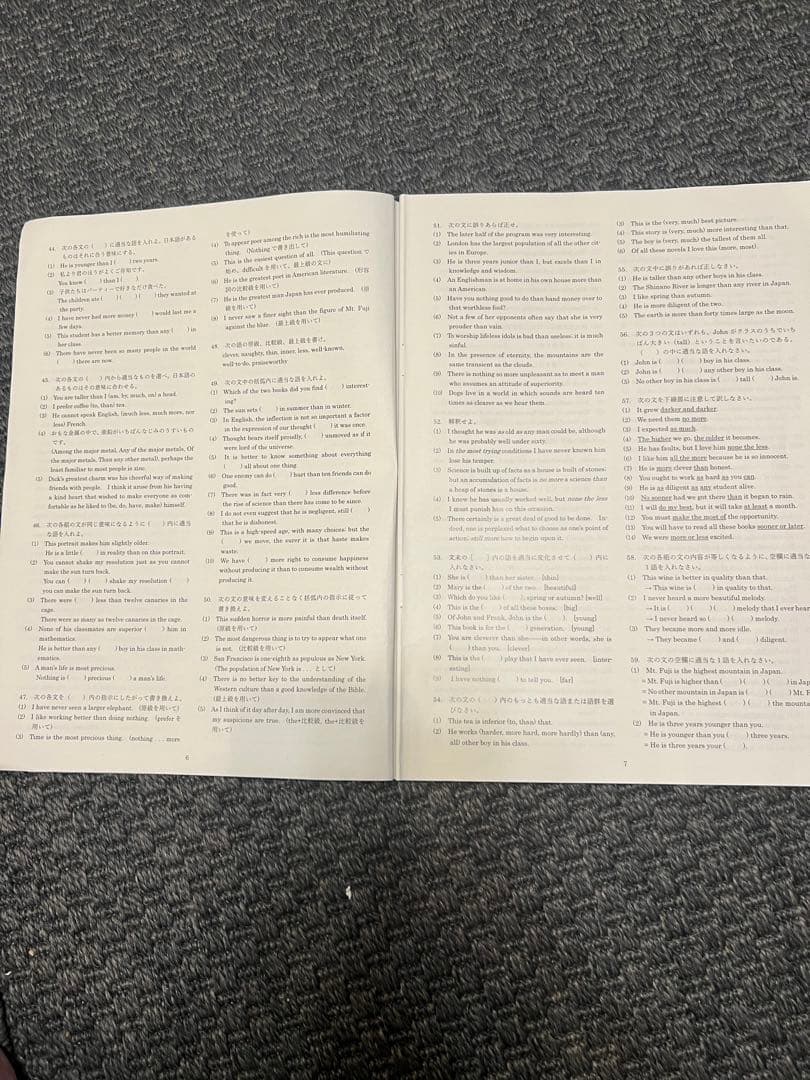 44. 次の各文の（　）に適当な語を入れよ。日本語がある
ものはそれに合う意味にする。
(1) He is younger than I (　) two years.
(2) 私より君のほうがよくご存知です。
You know (　) than I (　).
(3) 子供たちはパーティーで好きなだけ食べた。
The children ate (　)(　)(　) they wanted at
the party.
(4) I have never had more money (　) would last me a
few days.
(5) This student has a better memory than any (　) in
her class.
(6) There have never been so many people in the world
(　) there are now.
45. 次の各文の（　）内から適当なものを選べ。日本語の
あるものはその意味に合わせる。
(1) You are taller than I (am, by, much, on) a head.
(2) I prefer coffee (to, than) tea.
(3) He cannot speak English, (much less, much more, nor
less) French.
(4) おもな金属の中で、亜鉛がいちばんなじみのうすいもので
す。
(Among the major metal, Any of the major metals, Of
the major metals, Than any other metal), perhaps the
least familiar to most people is zinc.
(5) Dick's greatest charm was his cheerful way of making
friends with people. I think it arose from his having
a kind heart that wished to make everyone as com-
fortable as he liked to (be, do, have, make) himself.
46. 次の各組の文が同じ意味になるように（　）内に適当
な語を入れよ。
(1) This portrait makes him slightly older.
He is a little (　) in reality than on this portrait.
(2) You cannot shake my resolution just as you cannot
make the sun turn back.
You can (　)(　) shake my resolution (　)
you can make the sun turn back.
(3) There were (　) less than twelve canaries in the
cage.
There were as many as twelve canaries in the cage.
(4) None of his classmates are superior (　) him in
mathematics.
He is better than any (　) boy in his class in math-
ematics.
(5) A man's life is most precious.
Nothing is (　) precious (　) a man's life.
47. 次の各文を（　）内の指示にしたがって書き換えよ。
(1) I have never seen a larger elephant. (原級を用いて)
(2) I like working better than doing nothing. (prefer を
用いて)
(3) Time is the most precious thing. (nothing ... more
を使って)
(4) To appear poor among the rich is the most humiliating
thing. (Nothing で書き出して)
(5) This is the easiest question of all. (This question で
始め、difficult を用いて、最上級の文に)
(6) He is the greatest poet in American literature. (形容
詞の比較級を用いて)
(7) He is the greatest man Japan has ever produced. (原
級を用いて)
(8) I never saw a finer sight than the figure of Mt. Fuji
against the blue. (最上級を用いて)
48. 次の語の原級、比較級、最上級を書け。
clever, naughty, thin, inner, less, well-known,
well-to-do, praiseworthy
49. 次の文中の括弧内に適当な語を入れよ。
(1) Which of the two books did you find (　) interest-
ing?
(2) The sun sets (　) in summer than in winter.
(3) In English, the inflection is not so important a factor
in the expression of our thought (　) it was once.
(4) Thought bears itself proudly, (　) unmoved as if it
were lord of the universe.
(5) It is better to know something about everything
(　) all about one thing.
(6) One enemy can do (　) hurt than ten friends can do
good.
(7) There was in fact very (　) less difference before
the rise of science than there has come to be since.
(8) I do not even suggest that he is negligent, still (　)
that he is dishonest.
(9) This is a high-speed age, with many choices; but the
(　) we move, the surer it is that haste makes
waste.
(10) We have (　) more right to consume happiness
without producing it than to consume wealth without
producing it.
50. 次の文の意味を変えることなく括弧内の指示に従って
書き換えよ。
(1) This sudden horror is more painful than death itself.
(原級を用いて)
(2) The most dangerous thing is to try to appear what one
is not. (比較級を用いて)
(3) San Francisco is one-eighth as populous as New York.
(The population of New York is . . . として)
(4) There is no better key to the understanding of the
Western culture than a good knowledge of the Bible.
(最上級を用いて)
(5) As I think of it day after day, I am more convinced that
my suspicions are true. (the+比較級, the+比較級を
用いて)
6
51. 次の文に誤りあらば正せ。
(1) The later half of the program was very interesting.
(2) London has the largest population of all the other cit-
ies in Europe.
(3) He is three years junior than I, but excels than I in
knowledge and wisdom.
(4) An Englishman is at home in his own house more than
an American.
(5) Have you nothing good to do than hand money over to
that worthless fool?
(6) Not a few of her opponents often say that she is very
prouder than vain.
(7) To worship lifeless idols is bad than useless: it is much
sinful.
(8) In the presence of eternity, the mountains are the
same transient as the clouds.
(9) There is nothing so more unpleasant as to meet a man
who assumes an attitude of superiority.
(10) Dogs live in a world in which sounds are heard ten
times as clearer as we hear them.
52. 解釈せよ。
(1) I thought he was as old as any man could be, although
he was probably well under sixty.
(2) In the most trying conditions I have never known him
lose his temper.
(3) Science is built up of facts as a house is built of stones;
but an accumulation of facts is no more a science than
a heap of stones is a house.
(4) I know he has usually worked well, but none the less
I must punish him on this occasion.
(5) There certainly is a great deal of good to be done. In-
deed, one is perplexed what to choose as one's point of
action, still more how to begin upon it.
53. 文末の［　］内の語を適当に変化させて（　）内に
入れなさい。
(1) She is (　) than her sister. [thin]
(2) Mary is the (　) of the two. [beautiful]
(3) Which do you like (　), spring or autumn? [well]
(4) This is the (　) of all these boxes. [big]
(5) Of John and Frank, John is the (　). [young]
(6) This book is for the (　) generation. [young]
(7) You are cleverer than she—in other words, she is
(　) than you. [clever]
(8) This is the (　) play that I have ever seen. [inter-
esting]
(9) I have nothing (　) to tell you. [far]
54. 次の文の（　）内のもっとも適当な語または語群を選
びなさい。
(1) This tea is inferior (to, than) that.
(2) He works (harder, more hard, more hardly) than (any,
all) other boy in his class.
(3) This is the (very, much) best picture.
(4) This story is (very, much) more interesting than that.
(5) The boy is (very, much) the tallest of them all.
(6) Of all these novels I love this (more, most).
55. 次の文中に誤りがあれば正しなさい。
(1) He is taller than any other boys in his class.
(2) The Shinano River is longer than any river in Japan.
(3) I like spring than autumn.
(4) He is more diligent of the two.
(5) The earth is more than forty times large as the moon.
56. 次の３つの文はいずれも、John がクラスのうちでいち
ばん大きい (tall) ということを言いたいのである。
（　）の中に適当な語を入れなさい。
(1) John is (　)(　) boy in his class.
(2) John is (　)(　) any other boy in his class.
(3) No other boy in his class is (　) tall (　) John is.
57. 次の文を下線部に注意して訳しなさい。
(1) It grew darker and darker.
(2) We need them no more.
(3) I expected as much.
(4) The higher we go, the colder it becomes.
(5) He has faults, but I love him none the less.
(6) I like him all the more because he is so innocent.
(7) He is more clever than honest.
(8) You ought to work as hard as you can.
(9) He is as diligent as any student alive.
(10) No sooner had we got there than it began to rain.
(11) I will do my best, but it will take at least a month.
(12) You must make the most of the opportunity.
(13) You will have to read all these books sooner or later.
(14) We were more or less excited.
58. 次の各組の文の内容が等しくなるように、空欄に適当な
１語を入れなさい。
(1) This wine is better in quality than that.
→ This wine is (　) in quality to that.
(2) I never heard a more beautiful melody.
→ It is (　)(　)(　) melody that I ever hear
→ I never heard so (　)(　) melody.
(3) They became more and more idle.
→ They became (　) and (　) diligent.
59. 次の文の空欄に適当な１語を入れなさい。
(1) Mt. Fuji is the highest mountain in Japan.
= Mt. Fuji is higher than (　)(　)(　) in Jap
= No other mountain in Japan is (　)(　) Mt. F
= Mt. Fuji is the highest (　)(　) the mounta
in Japan.
(2) He is three years younger than you.
= He is younger than you (　) three years.
= He is three years your (　).
7